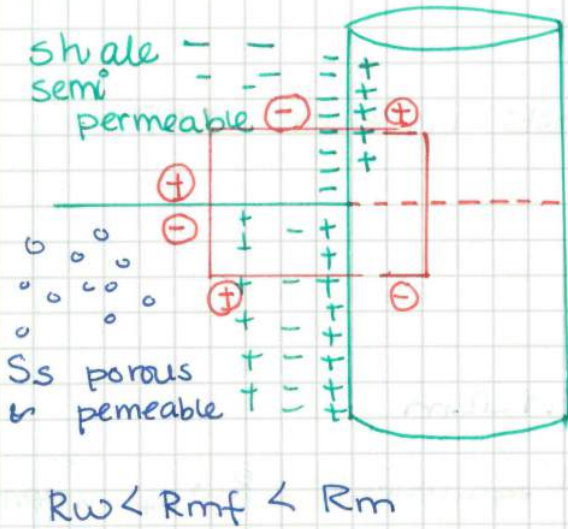 shale
semi
permeable
Ss porous
& pemeable
Rw < Rmf < Rm